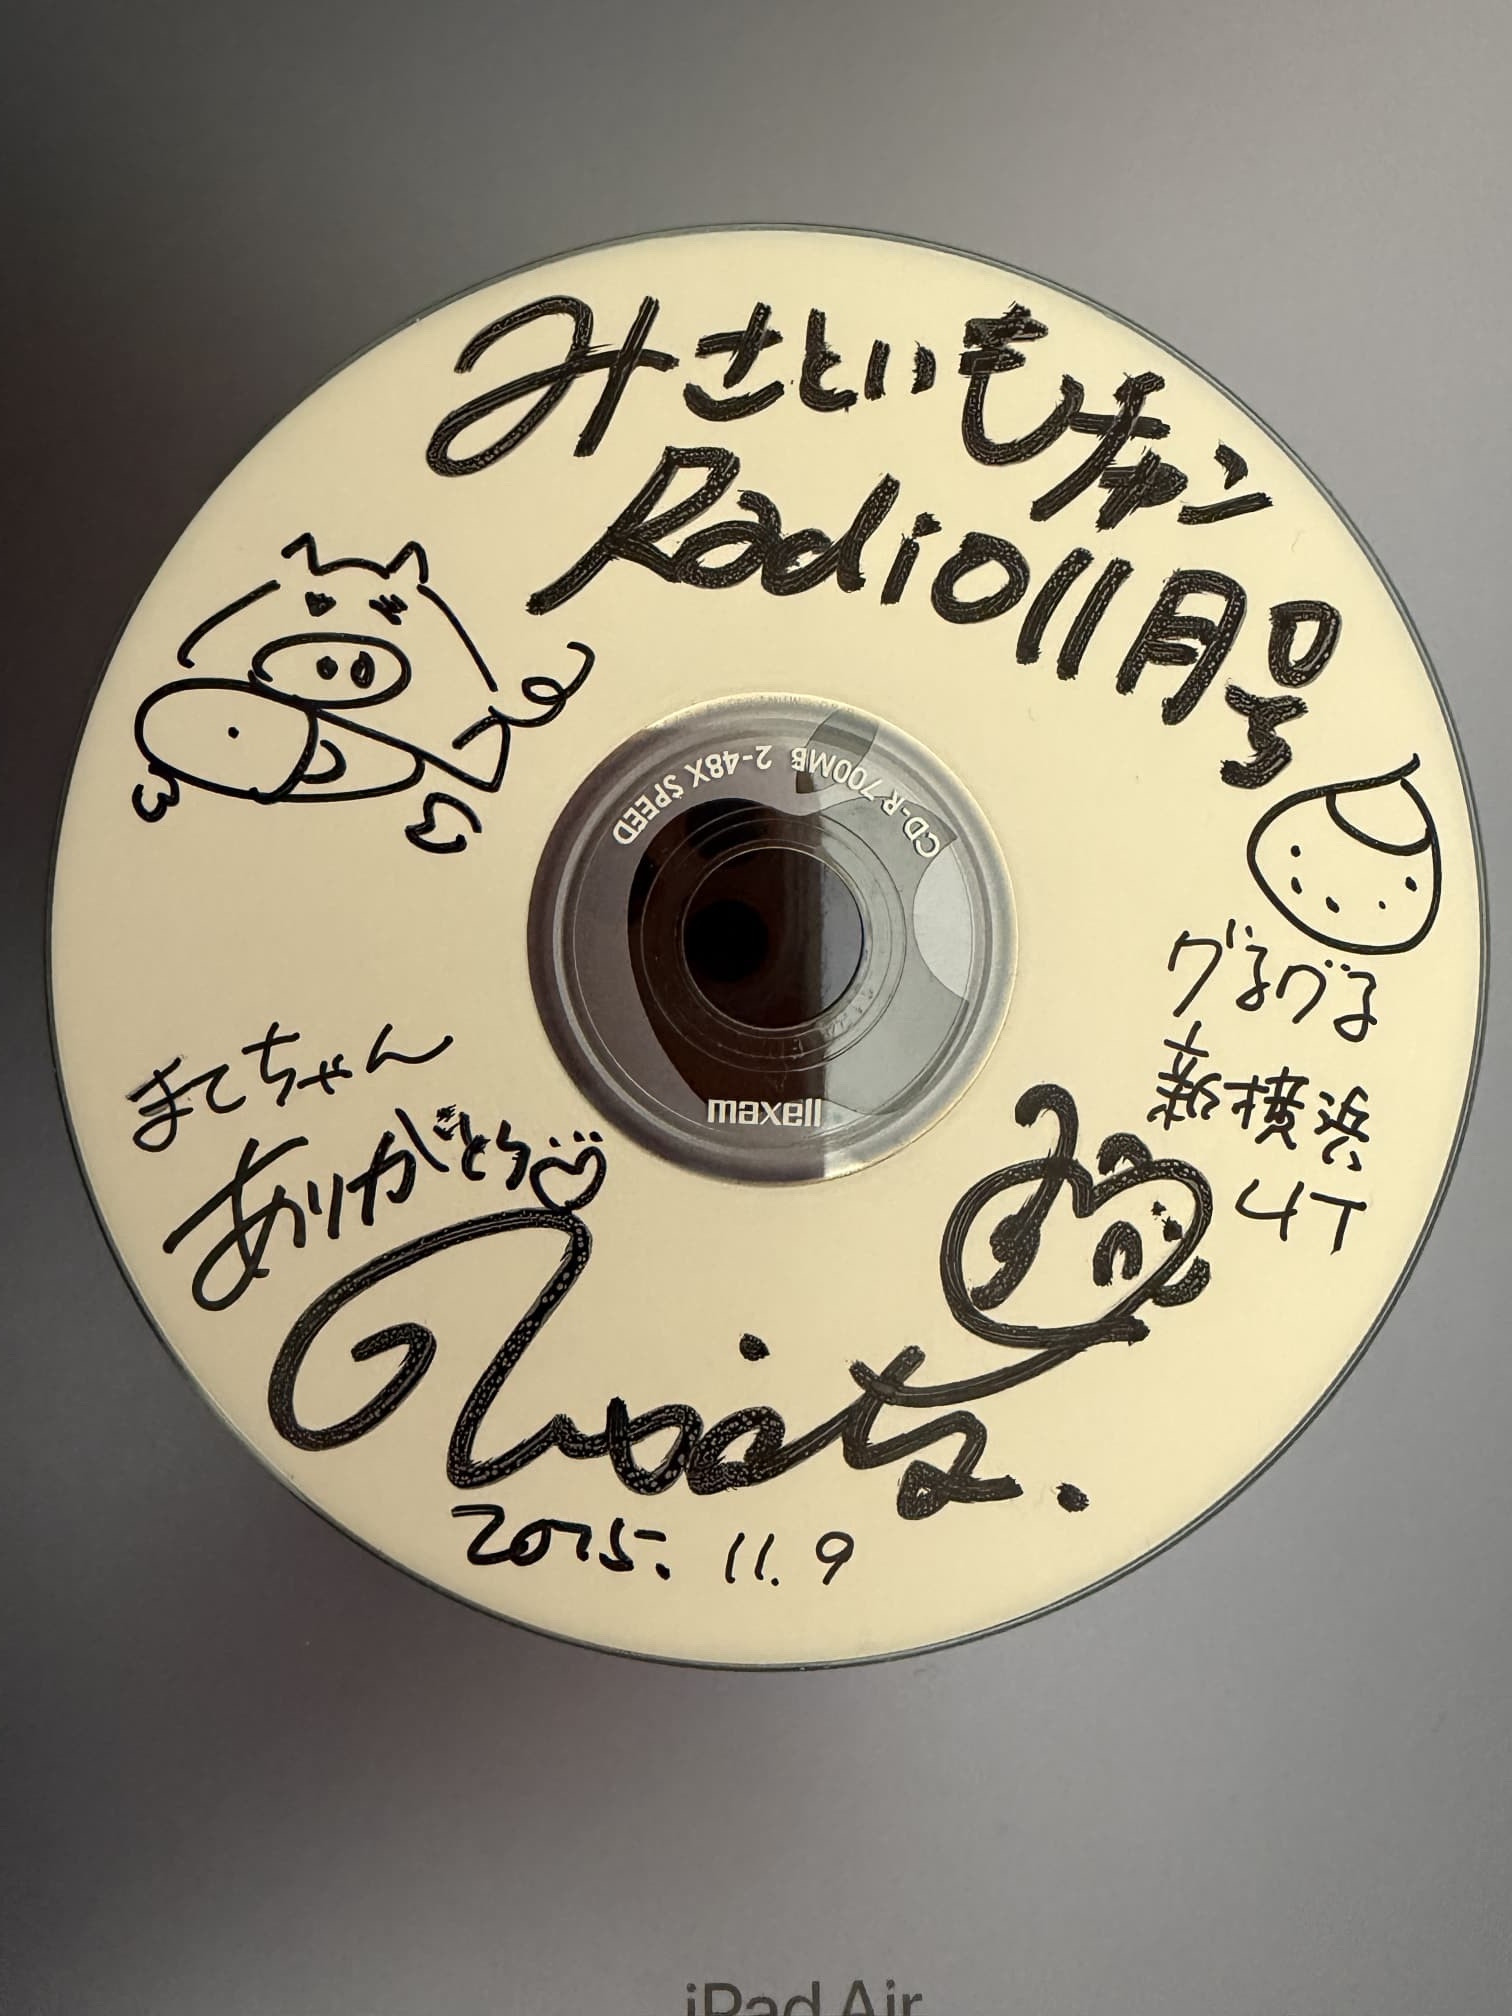 みさといもチャン
Radio11月号
CD-R 700MB 2-48X SPEED
maxell
グるグる
新横浜
4T
まてちゃん
ありがとう
Misato.
2015.11.9
iPad Air